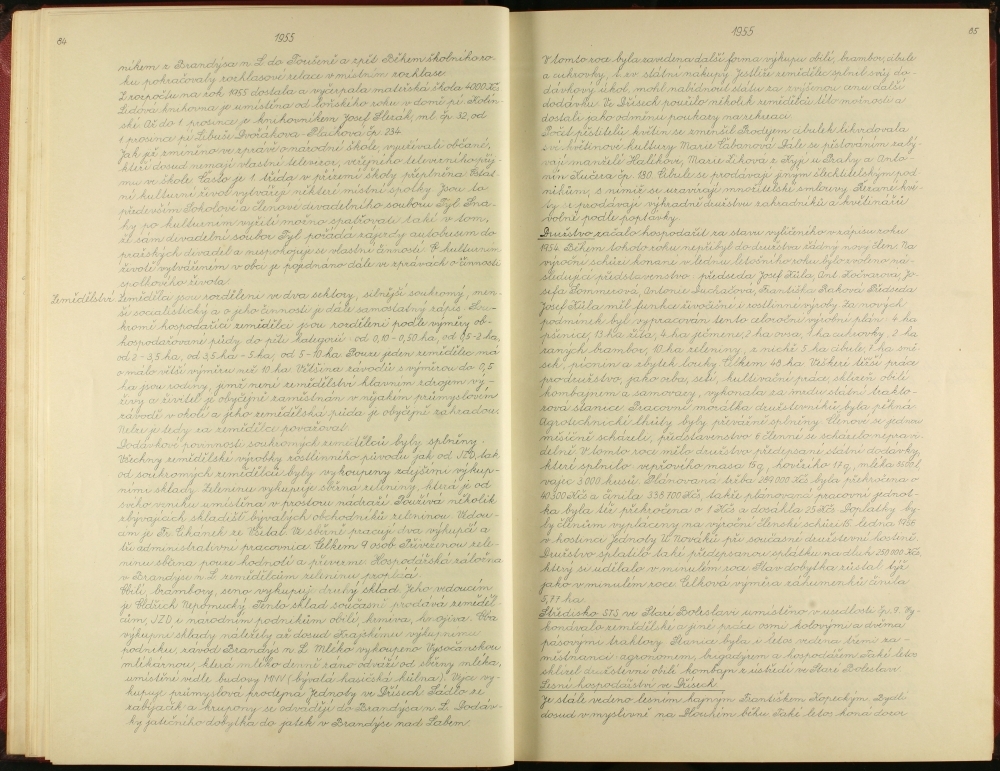 84
1955
níkem z Brandýsa n L. do Toušeně a zpět. Během školního ro-
ku pokračovaly rozhlasové relace v místním rozhlase.
Z rozpočtu na rok 1955 dostala a vyčerpala mateřská škola 4000 Kčs
Lidová knihovna je umístěna od loňského roku v domě pí. Kolín-
ské. Až do 1. prosince je knihovníkem Josef Slerak, ml. čp. 52, od
1. prosince pí Libuše Dvořáková-Ptáčková čp. 234.
Jak již zmíněno ve zprávě o národní škole, využívali občané,
kteří dosud nemají vlastní televizor, veřejného televizního příj-
mu ve škole. Často je 1. třída v přízemí školy přeplněna. Ostat-
ní kulturní život vytvářejí některé místní spolky. Jsou to
především Sokolové a členové divadelního souboru Tyl. Sna-
hy po kulturním vyžití možno spatřovati také v tom,
že sám divadelní soubor Tyl pořádá zájezdy autobusem do
pražských divadel a nespokojuje se vlastní činností. O kulturním
životě vytvářeném v obci je pojednáno dále ve zprávách o činnosti
spolkového života.
Zemědělství Zemědělci jsou rozděleni ve dva sektory, silnější soukromý, men-
ší socialistický a o jeho činnosti je dále samostatný zápis. Sou-
kromě hospodařící zemědělci jsou rozděleni podle výměry ob-
hospodařované půdy do pěti kategorií: od 0,10-0,50 ha, od 0,5-2 ha,
od 2-3,5 ha, od 3,5 ha-5 ha, od 5-10 ha. Pouze jeden zemědělec má
o málo větší výměru než 10 ha. Většina závodů s výměrou do 0,5
ha jsou rodiny, jimž není zemědělství hlavním zdrojem vý-
živy a živitel je obyčejně zaměstnán v nějakém průmyslovém
závodě v okolí a jeho zemědělská půda je obyčejně zahradou.
Nelze je tedy za zemědělce považovat.
Dodávkové povinnosti soukromých zemědělců byly splněny.
Všechny zemědělské výrobky rostlinného původu jak od JZD, tak
od soukromých zemědělců byly vykoupeny zdejšími výkup-
ními sklady. Zeleninu vykupuje sběrna zeleniny, která je od
svého vzniku umístěna v prostoru nádraží. Používá několik
zbývajících skladišť bývalých obchodníků zeleninou. Vedou-
cím je Fr. Cihánek ze Všetat. Ve sběrně pracují dva výkupčí a
tři administrativní pracovnice. Celkem 9 osob. Převzatou zele-
ninu sběrna pouze hodnotí a převezme. Hospodářská záložna
v Brandýse n L. zemědělcům zeleninu proplácí.
Obilí, brambory, seno vykupuje druhý sklad. Jeho vedoucím
je Oldřich Nepomucký. Tento sklad současně prodává zeměděl-
cům, JZD i národním podnikům obilí, krmiva, hnojiva. Oba
výkupní sklady náležely až dosud Krajskému výkupnímu
podniku, závod Brandýs n L. Mléko vykoupeno Vysočanskou
mlékárnou, která mléko denně ráno odváží od sběrny mléka,
umístěné vedle budovy MNV (bývalá hasičská kůlna). Vejce vy-
kupuje průmyslová prodejna Jednoty ve Dřísech. Sádlo ze
zabijaček a krupony se odvádějí do Brandýsa n L. Dodáv-
ky jatečního dobytka do jatek v Brandýse nad Labem.
85
1955
V tomto roce byla zavedena další forma výkupu obilí, brambor, cibule
a cukrovky, t. zv. státní nákupy. Jestliže zemědělec splnil svůj do-
dávkový úkol, mohl nabídnout státu za zvýšenou cenu další
dodávku. Ve Dřísech použilo několik zemědělců této možnosti a
dostali jako odměnu poukazy na rekreaci.
Počet pěstitelů květin se zmenšil. Prodejem cibulek likvidovala
své květinové kultury Marie Čabanová. Dále se pěstováním zabý-
vají manželé Halíkovi, Marie Líkova z Kyjí u Prahy a Anto-
nín Kučera čp. 130. Cibule se prodávají jiným šlechtitelským pod-
nikům, s nimiž se uzavírají množitelské smlouvy. Řezané kvě-
ty se prodávají výhradně družstvu zahradníků a květinářů
volně podle poptávky.
Družstvo začalo hospodařit za stavu vylíčeného v zápisu roku
1954. Během tohoto roku nepřibyl do družstva žádný nový člen. Na
výroční schůzi konané v lednu letošního roku bylo zvoleno ná-
sledující představenstvo: předseda Josef Kůla, Ant. Kočnarová, Jo-
sefa Sommerová, Antonie Ducháčová, Františka Řezková. Předseda
Josef Kůla měl funkce živočišné i rostlinné výroby. Za nových
podmínek byl vypracován tento celoroční výrobní plán: 4 ha
pšenice, 13 ha žita, 4 ha ječmene, 2 ha ovsa, 1 ha cukrovky, 2 ha
raných brambor, 10 ha zeleniny, z nichž 5 ha cibule, 2 ha smě-
sek, pícnin a zbytek louky. Celkem 48 ha. Veškeré těžší práce
pro družstvo, jako orba, setí, kultivační práce, sklizeň obilí
kombajnem a samovazy, vykonala za mzdu státní trakto-
rová stanice. Pracovní morálka družstevníků byla pěkná.
Agrotechnické lhůty byly převážně splněny. Členové se jedna
měsíčně scházeli, představenstvo 6 členné se scházelo nepravi-
delně. V tomto roce mělo družstvo předepsané státní dodávky,
které splnilo: vepřového masa 15 q, hovězího 17 q, mléka 3500 l,
vajec 3.000 kusů. Plánovaná tržba 289000 Kčs byla překročena o
40300 Kčs a činila 338700 Kčs, takže plánovaná pracovní jednot-
ka byla též překročena o 1 Kčs a dosáhla 25 Kčs. Doplatky by-
ly členům vypláceny na výroční členské schůzi 15. ledna 1956
v hostinci Jednoty U Nováků při současné družstevní hostině.
Družstvo splatilo také předepsanou splátku na dluh 250000 Kčs,
který se udělalo v minulém roce. Stav dobytka zůstal týž
jako v minulém roce. Celková výměra záhumenků činila
5,77 ha.
Středisko STS ve Staré Boleslavi umístěno v usedlosti čp. 9. Vy-
konávalo zemědělské a jiné práce osmi kolovými a dvěma
pásovými traktory. Stanice byla i letos vedena třemi za-
městnanci: agronomem, brigadýrem a hospodářem. Také letos
sklízel družstevní obilí kombajn z ústředí ve Staré Boleslavi.
Lesní hospodářství ve Dřísech
Je stále vedeno lesním hajným Františkem Kopeckým. Bydlí
dosud v myslivně na Dlouhém běhu. Také letos koná dozor